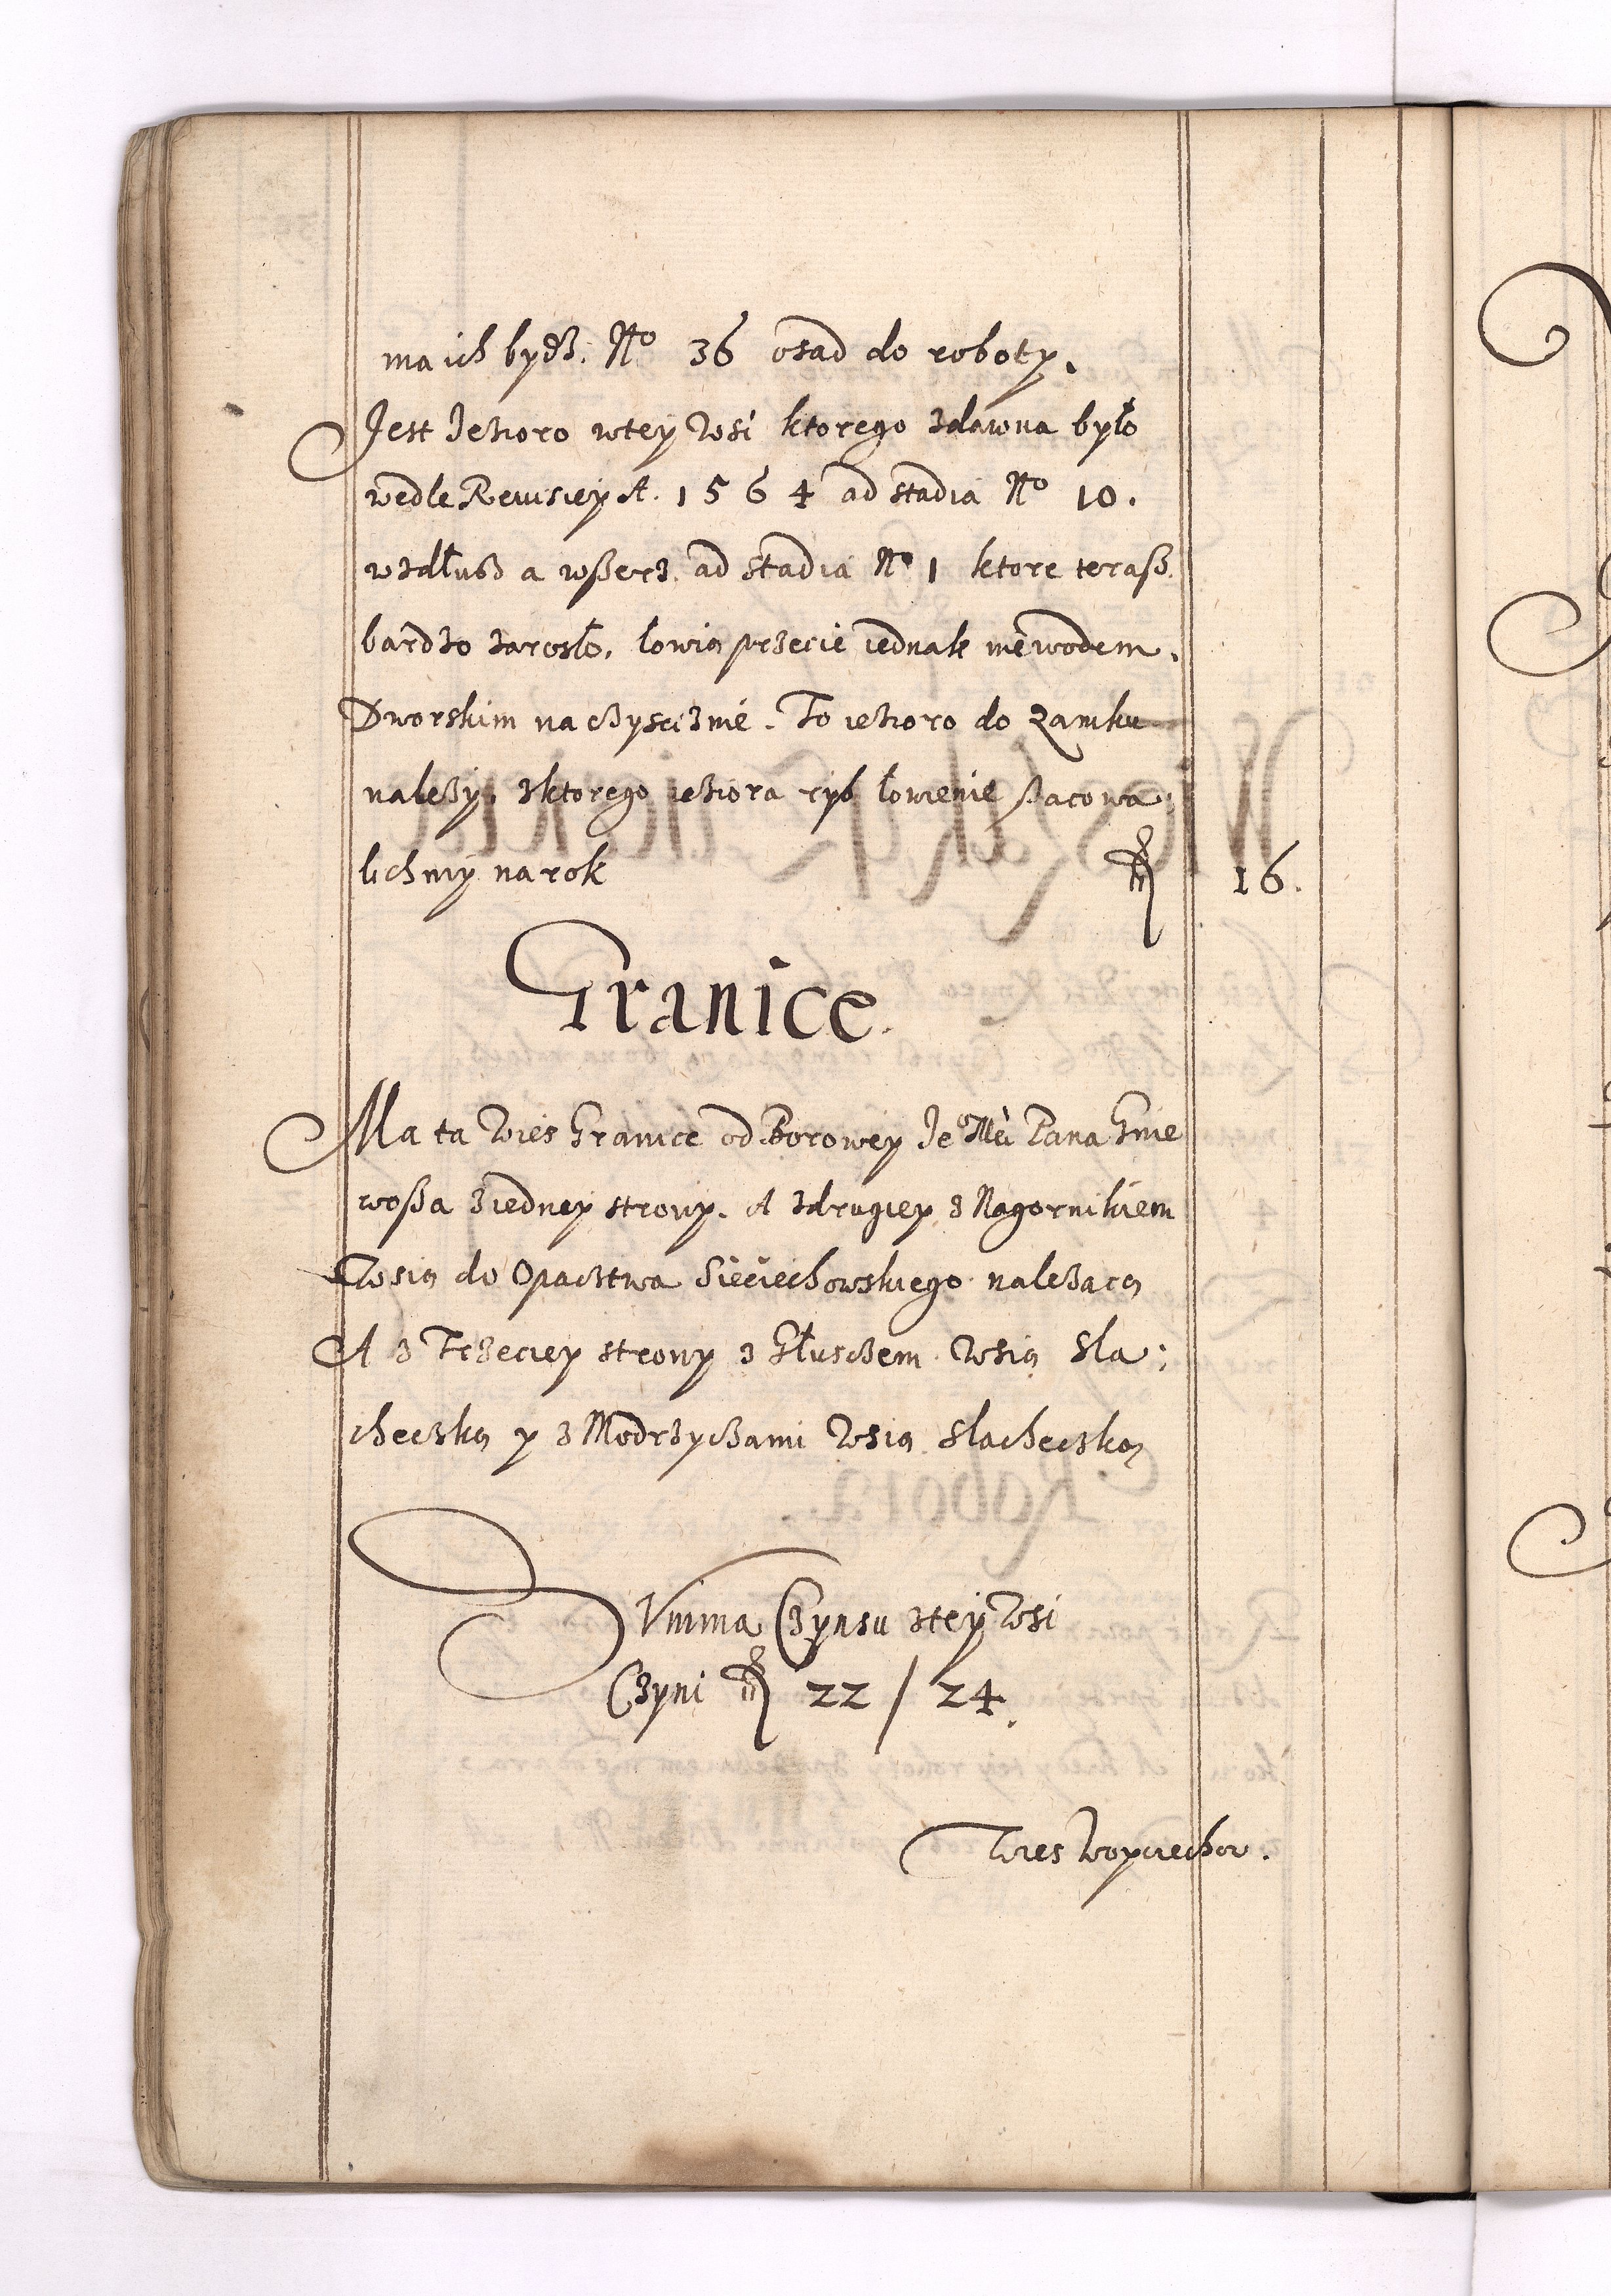 ma ich bydź. No 36 osad do roboty.
Jest Jezioro wtey Wsi ktorego zdawna było
wedle Rewisiey A. 1564 ad stadia No 10.
wzdłusz a wszerz. ad stadia No 1 ktore terasz
bardzo zarosło, łowią przecie iednak niewodem,
Dworskim na czysciznie. To iezioro do Zamku
należy, zktorego ieziora ryb łowienie szacowa:
lichmy na rok fl 16.
Granice.
Ma ta Wies Granice od Borowey Je Mci Pana Gnie
wosza ziedney strony. A zdrugiey z Nagornikiem
Wsią do Opactwa Sieciechowskiego należacą
A z Trzeciey strony z Głusczem Wsią sla:
checzką y z Modrzyczami Wsią slachecską
Summa Czynsu ztey Wsi
Czyni fl 22 / 24.
Wies Woyciechow.